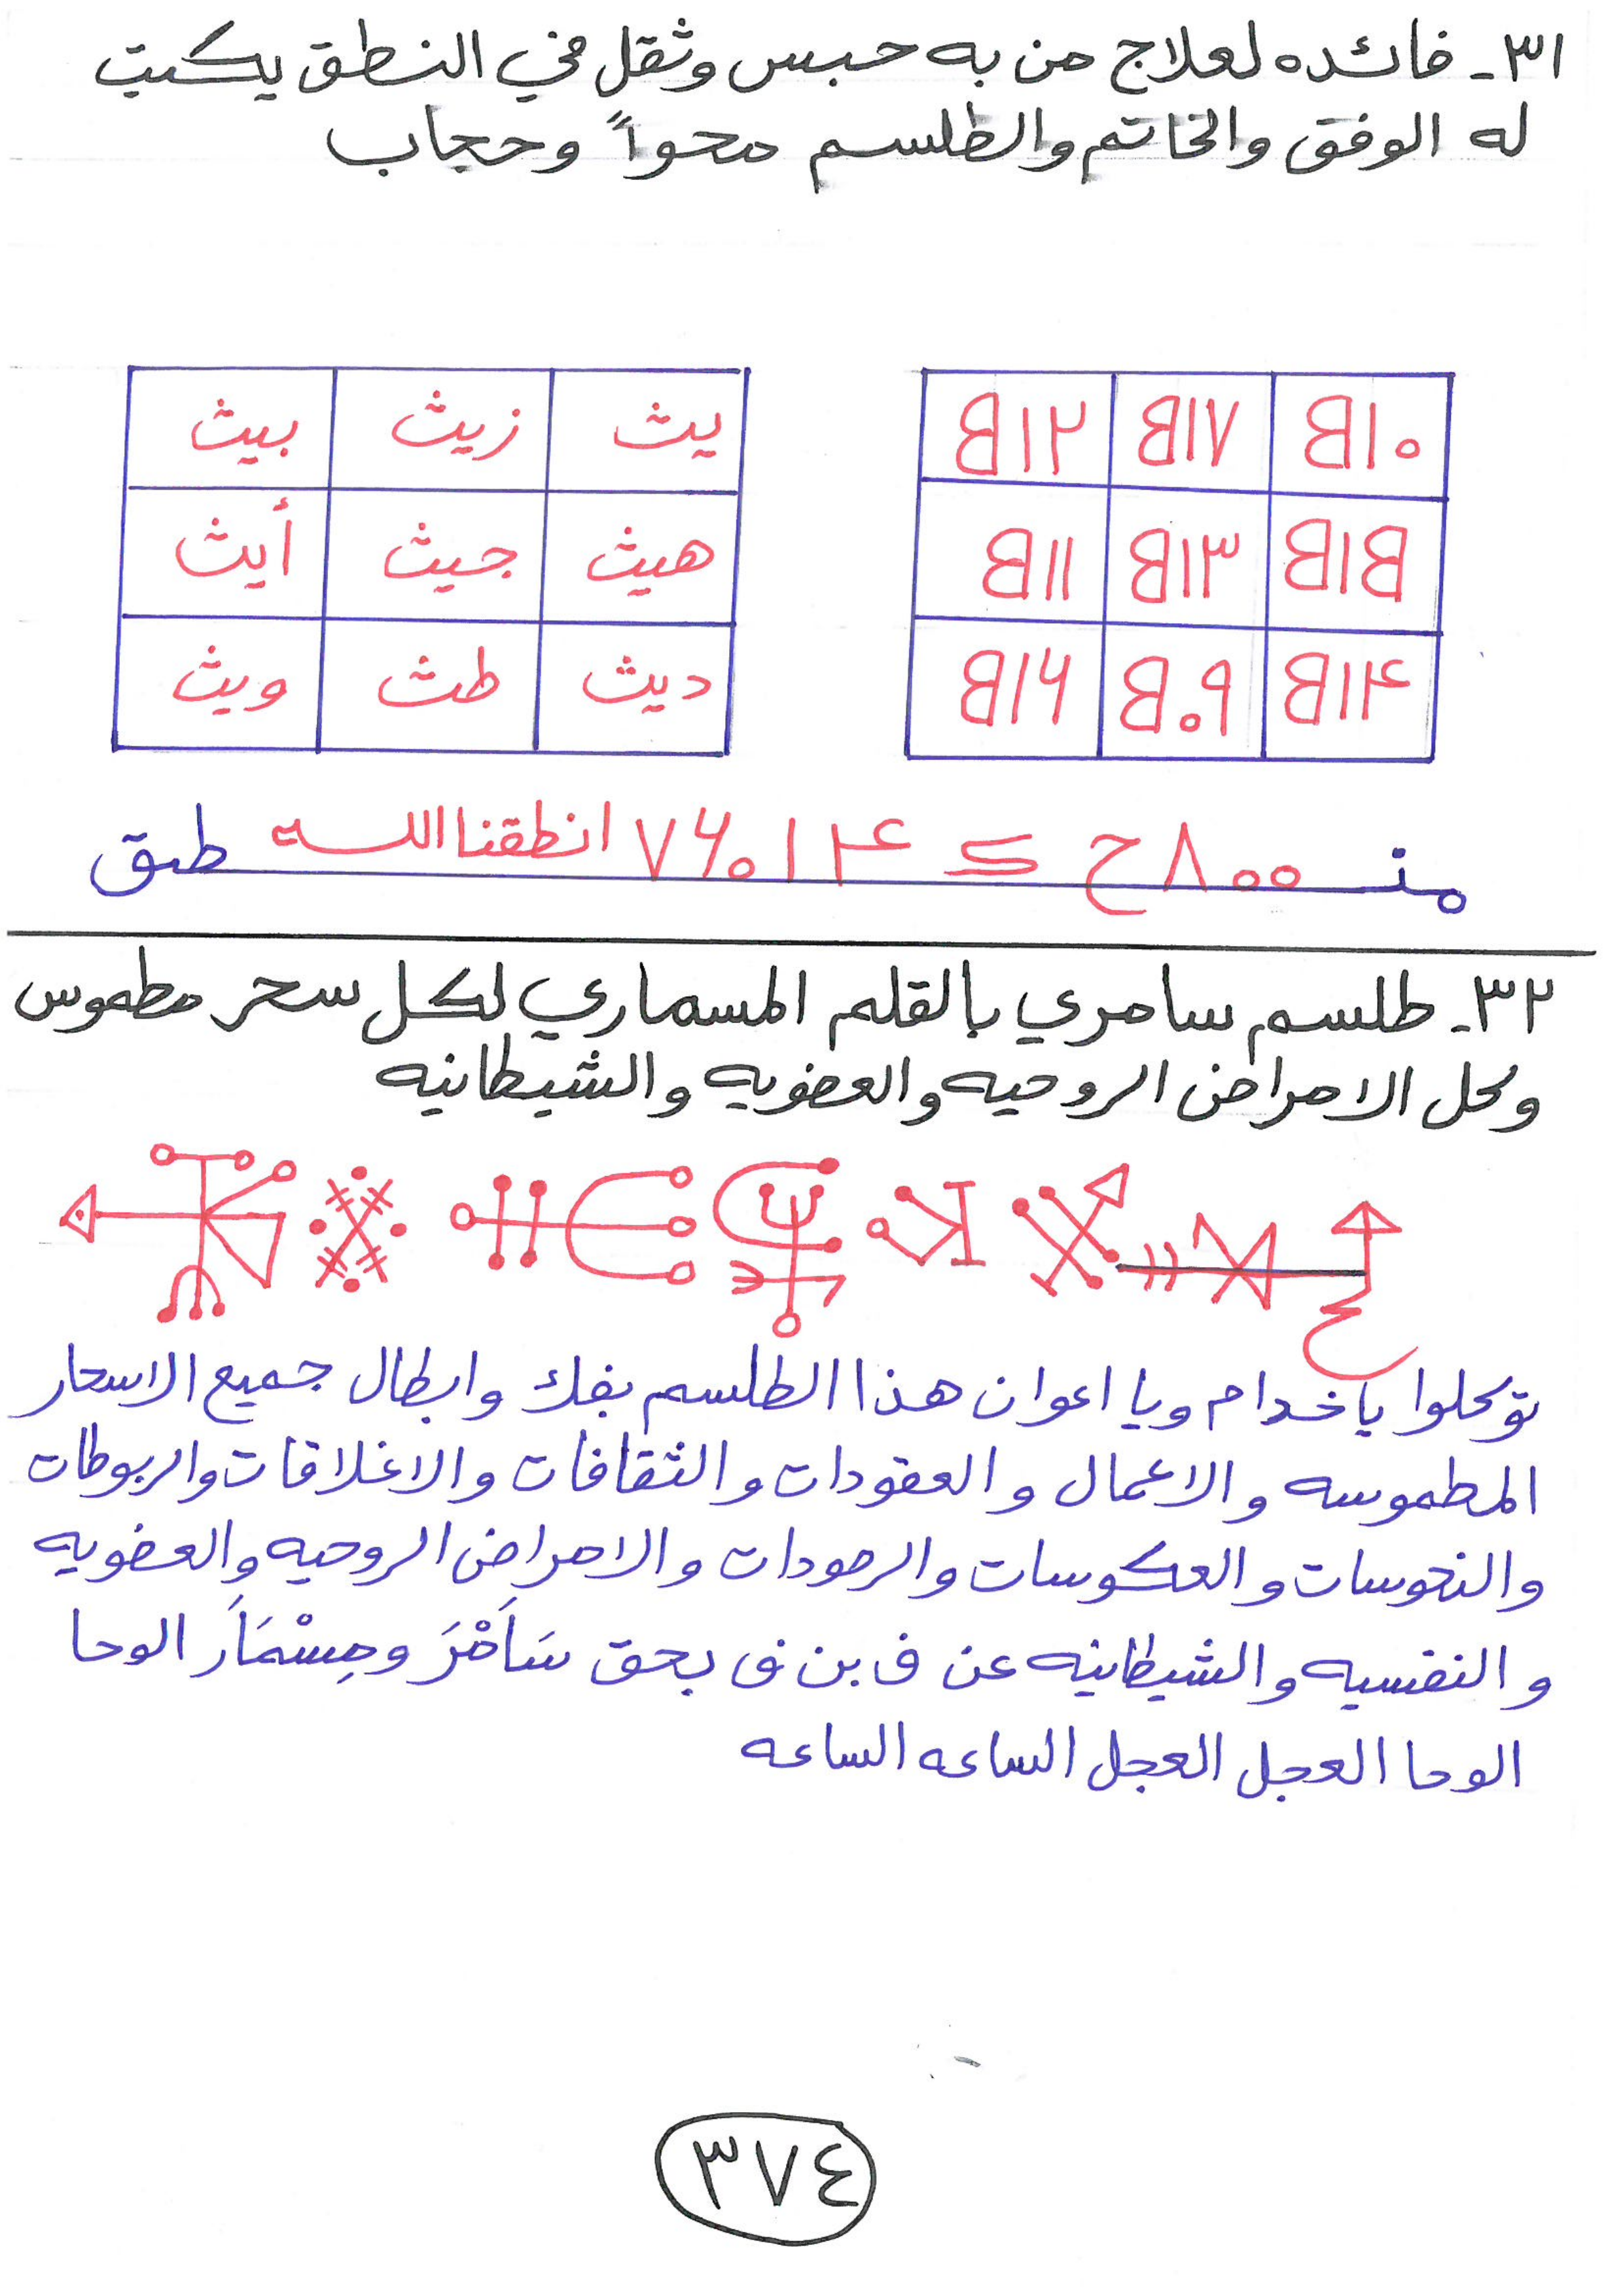 ٣١- فائده لعلاج من به حبس وثقل في النطق يكتب
له الوفق والخاتم والطلسم محواً وحجاب
يث زيث بيث
هيث جيث أيث
ديث طث ويث
انطقنا الله
٣٢- طلسم سامري بالقلم المسماري لكل سحر مطموس
وكل الامراض الروحيه والعضويه والشيطانيه
توكلوا ياخدام ويا اعوان هذا الطلسم بفك وابطال جميع الاسحار
المطموسه والاعمال والعقودات والثقافات والاغلاقات والربوطات
والنحوسات والعكوسات والرصودات والامراض الروحيه والعضويه
والنفسيه والشيطانيه عن ف بن ف بحق سَاَمْرَ ومِسْمَاَر الوحا
الوحا العجل العجل الساعه الساعه
٣٧٤